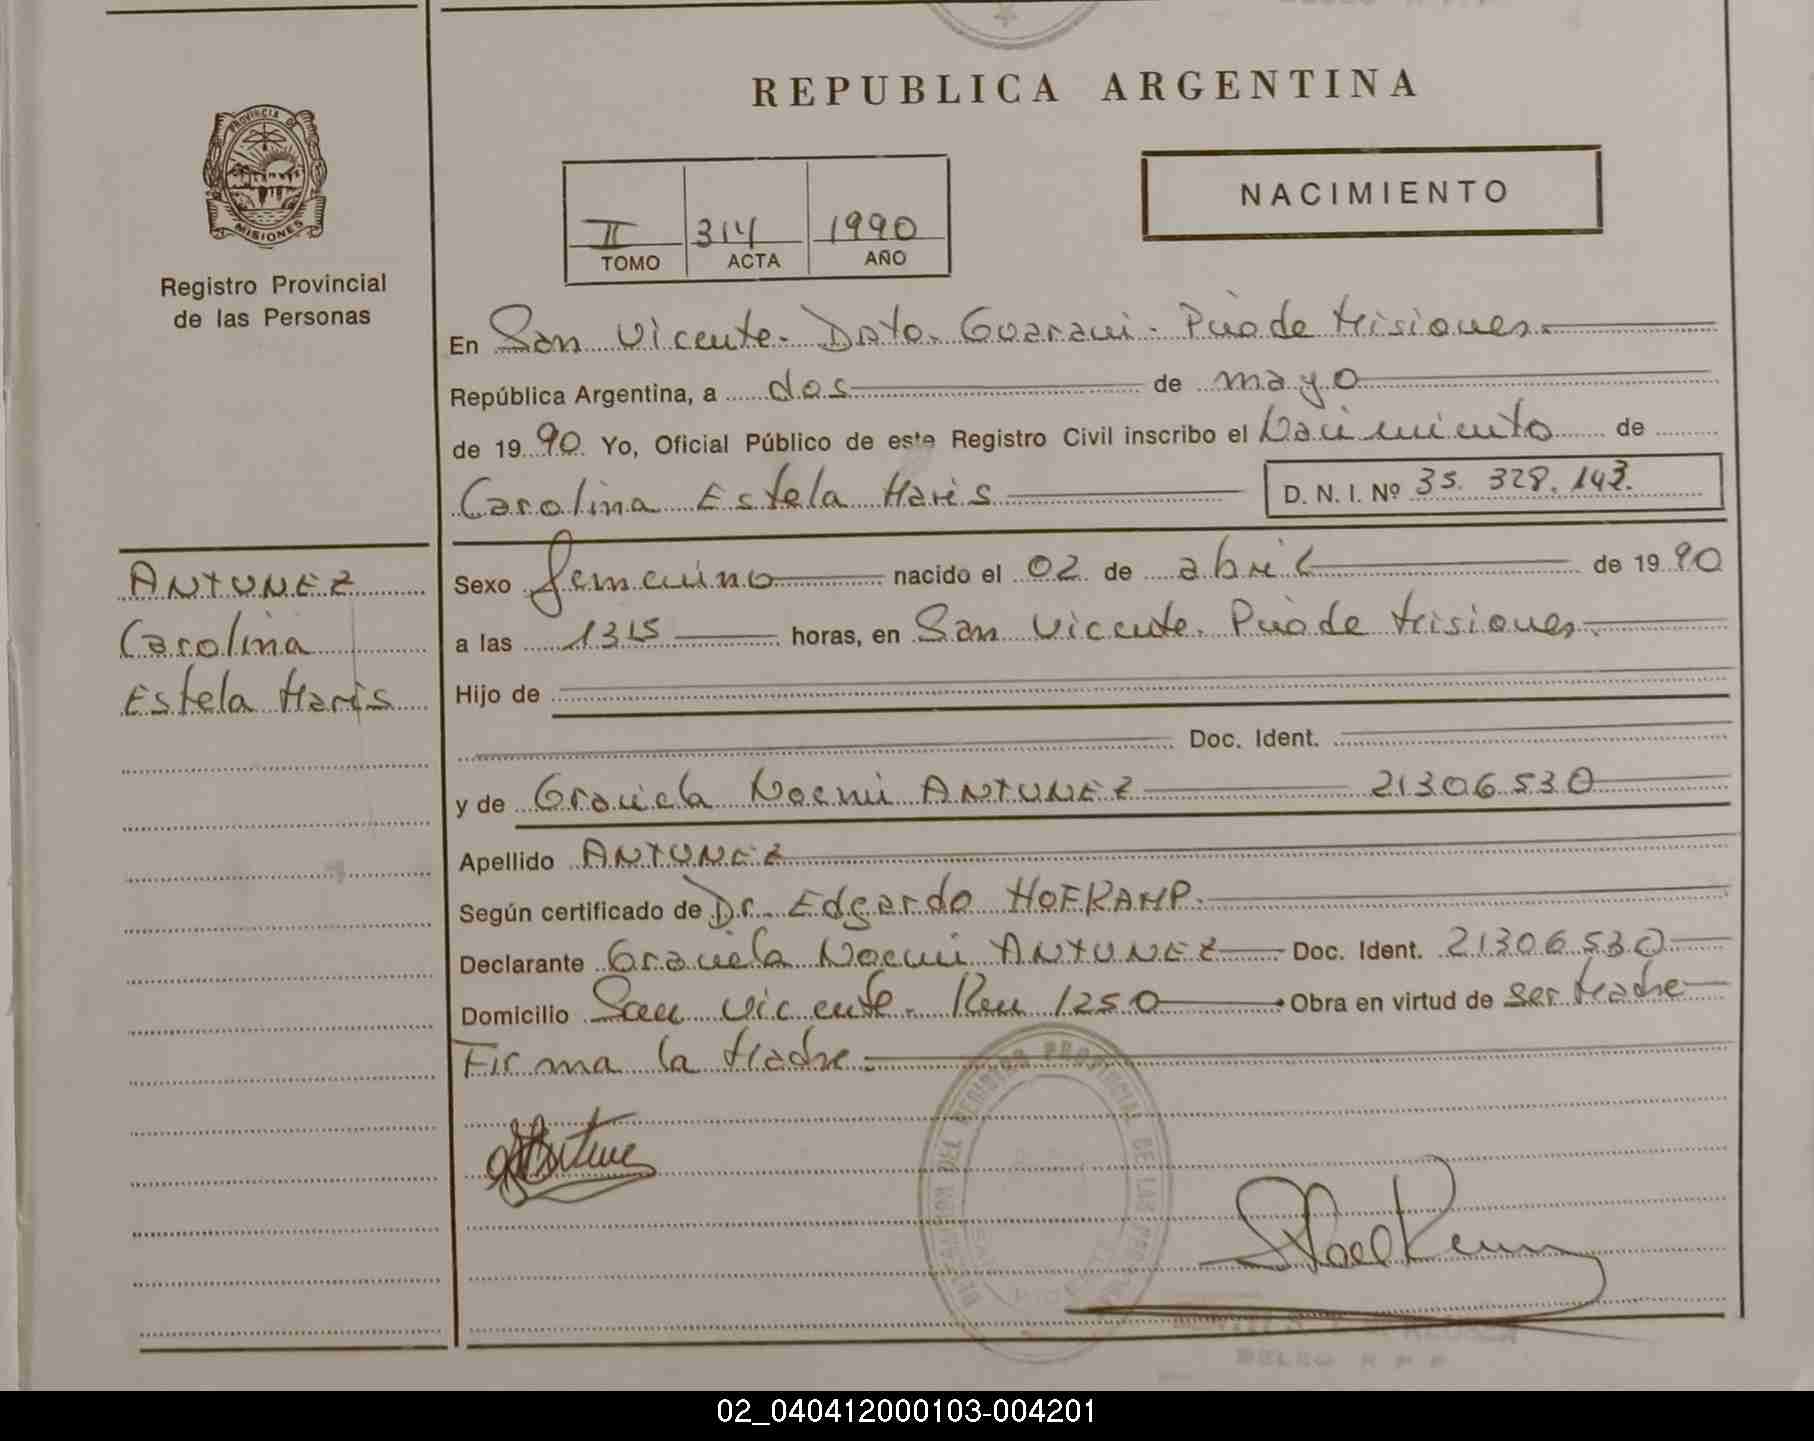 REPUBLICA ARGENTINA
PROVINCIA DE
MISIONES
Registro Provincial
de las Personas
NACIMIENTO
II 314 1990
TOMO ACTA AÑO
En San Vicente. Dpto. Guarani. Pcia de Misiones.
República Argentina, a dos de mayo
de 19 90 Yo, Oficial Público de este Registro Civil inscribo el Nacimiento de
Carolina Estela Maris D. N. I. Nº 35.328.143.
ANTUNEZ
Carolina
Estela Maris
Sexo femenino nacido el 02 de abril de 19 90
a las 1315 horas, en San Vicente. Pcia de Misiones.
Hijo de
Doc. Ident.
y de Graciela Noemi ANTUNEZ 21306530
Apellido ANTUNEZ
Según certificado de Dr. Edgardo HOFKAMP.
Declarante Graciela Noemi ANTUNEZ Doc. Ident. 21306530
Domicilio San Vicente. Km 1250 Obra en virtud de ser Madre
Firma la Madre.
DEL REGISTRO PROVINCIAL DE LAS
DELEG R P P
02_040412000103-004201